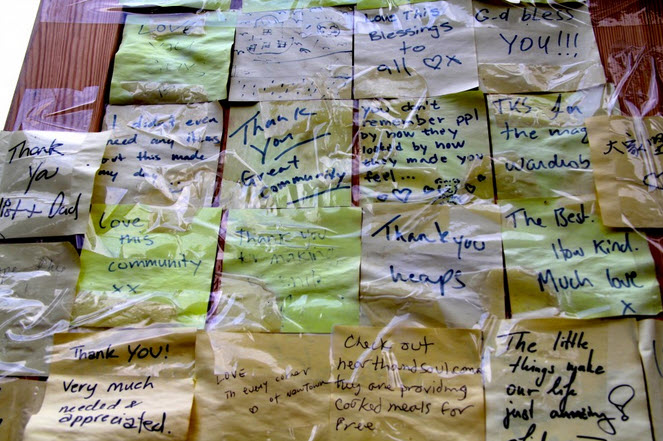 Love
Love This
Blessings
to
all ♡x
G-d bless
YOU!!!
Thank
You
Pot + Dad
I didn't even
need any things
but this made
my day...
Thank
You
Great
community
You don't
remember ppl
by how they
looked by how
they made you
feel...
TKS for
the mag
wardrob
Love
this
community
xx
Thank you
for making
Thank you
heaps
The Best.
How Kind.
Much love
x
Thank You!
Very much
needed &
appreciated.
LOVE
in every corner
of newtown
Check out
they are providing
cooked meals for
free.
The little
things make
our life
just amazing!